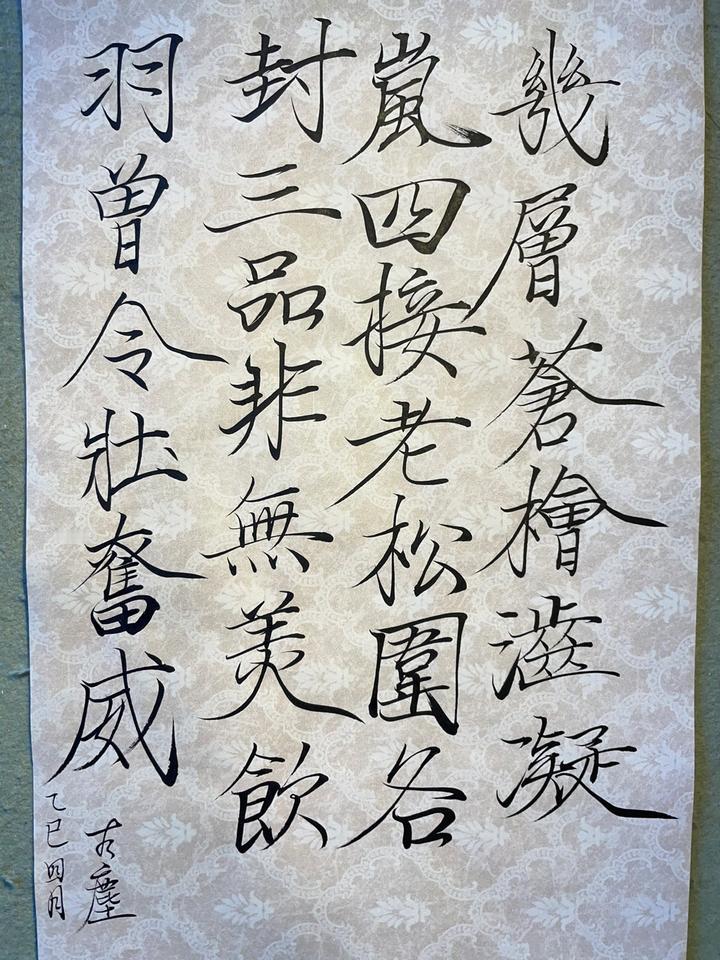 幾層蒼檜澁凝
嵐四接老松圍各
封三品非無美飲
羽曾令壯奮威
塵
乙巳四月